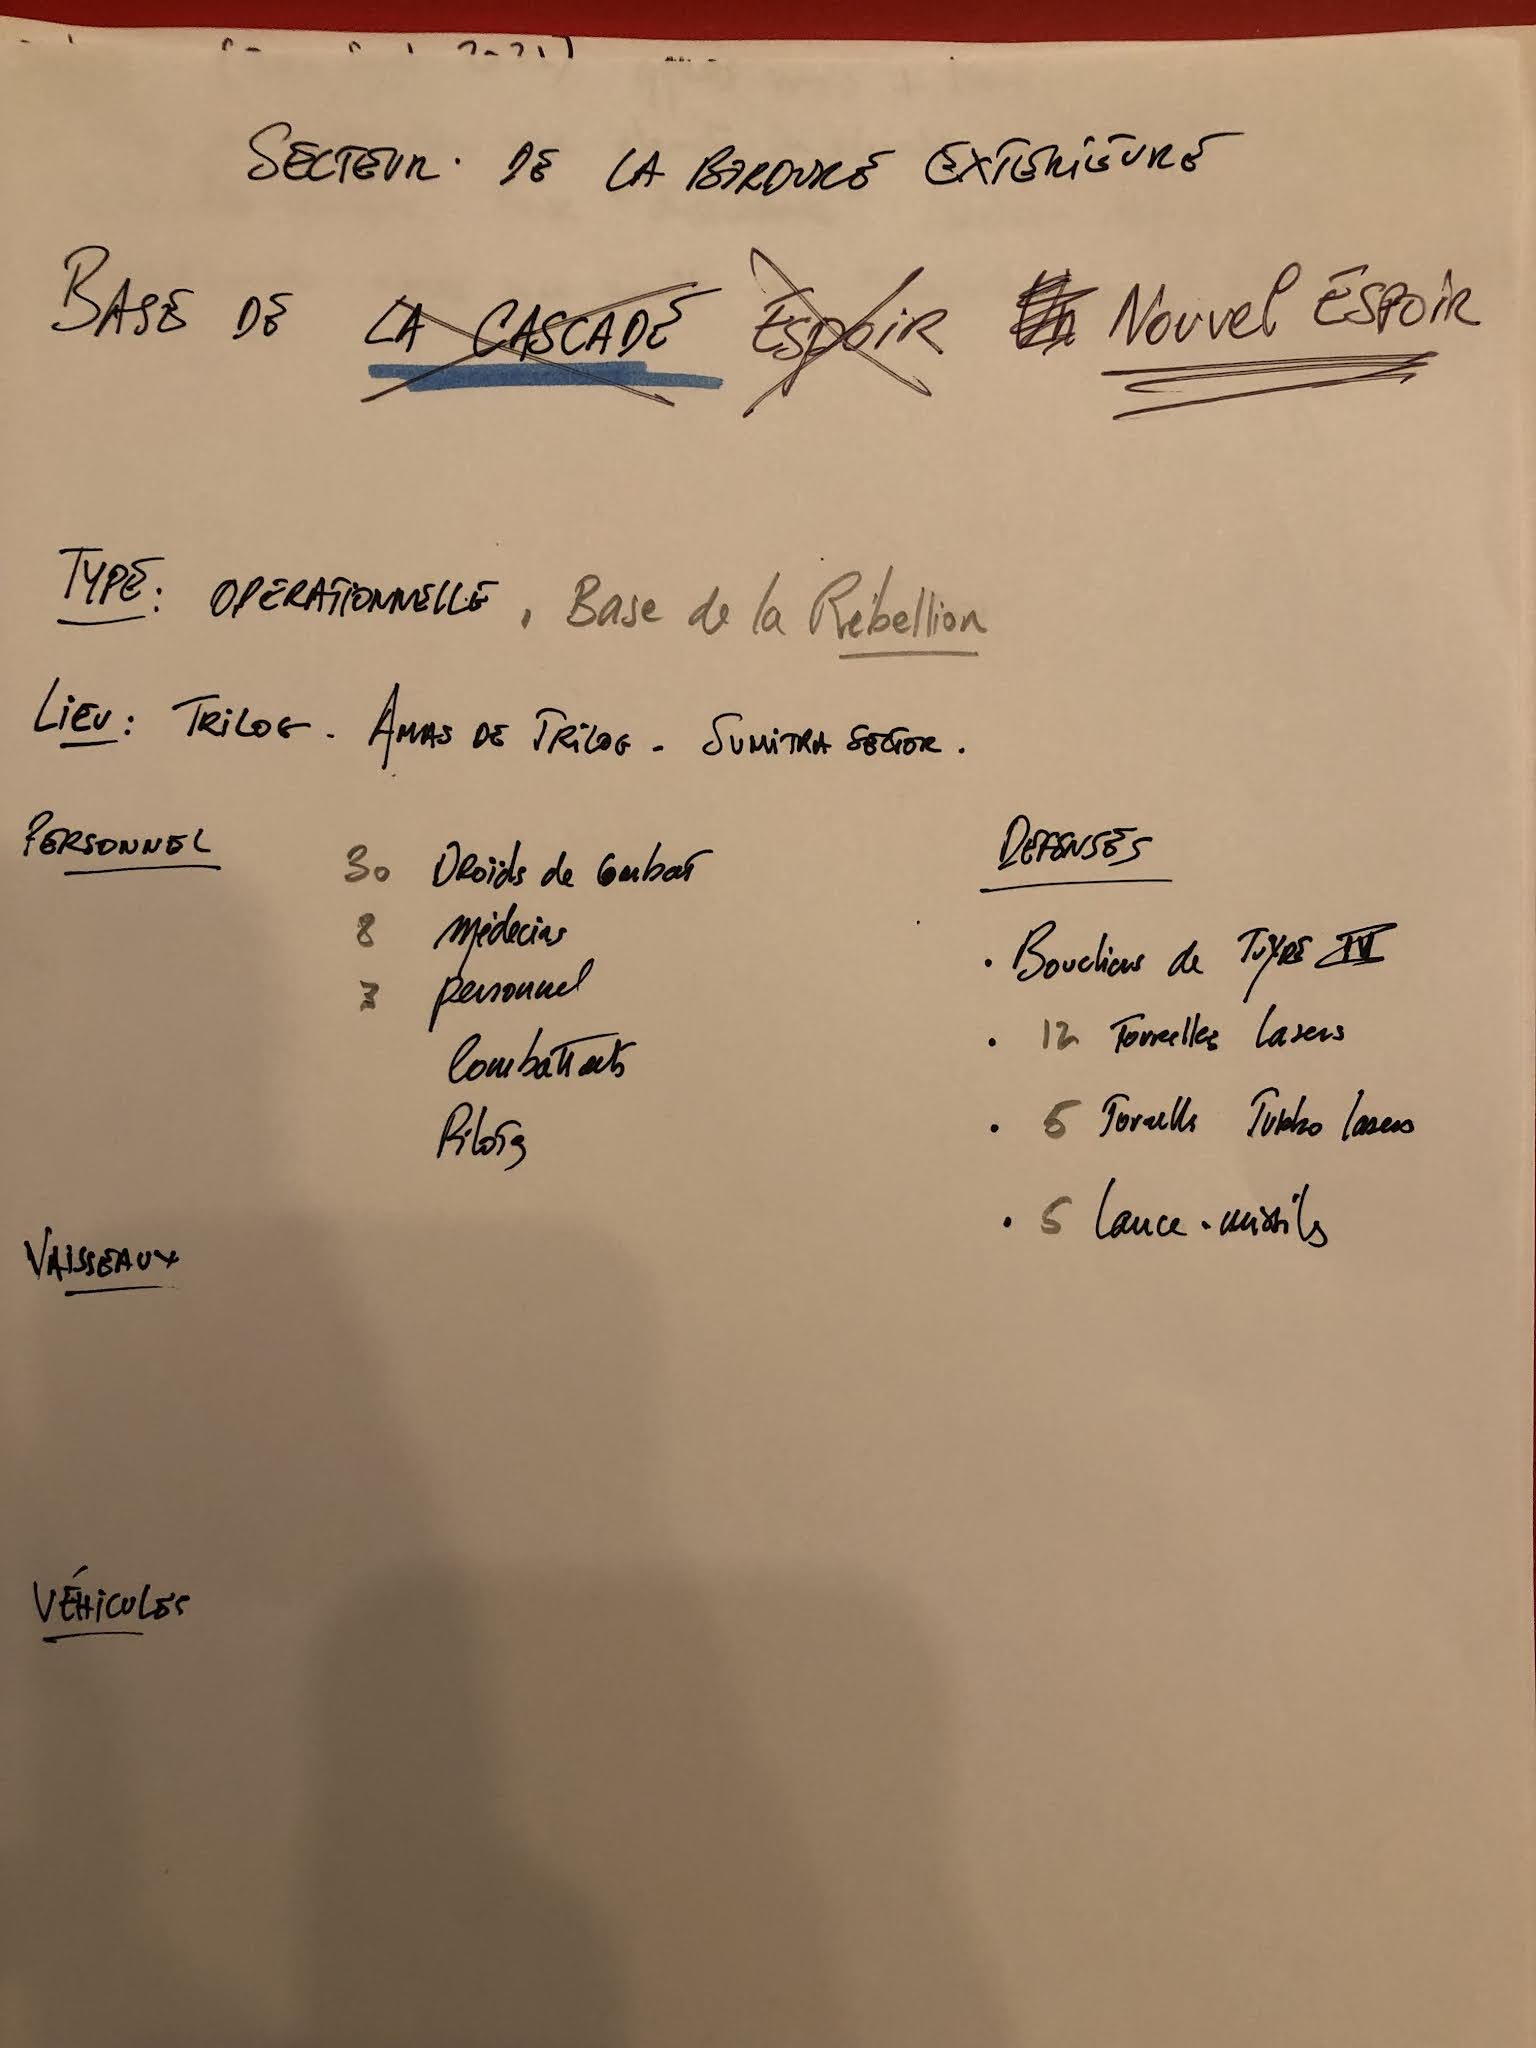 SECTEUR. DE LA BORDURE EXTERIEURE
BASE DE LA CASCADE ESPOIR Nouvel ESPOIR
TYPE: OPERATIONNELLE, Base de la Rébellion
LIEU: TRILOG. AMAS DE TRILOG - SUMITRA SECTOR.
PERSONNEL
30 Droïds de Combat
8 médecins
personnel
Combattants
Pilotes
DEFENSES
• Boucliers de TYPE IV
• 12 Tourelles lasers
• 5 Tourelles Turbo lasers
• 5 Lance-missiles
VAISSEAUX
VÉHICULES